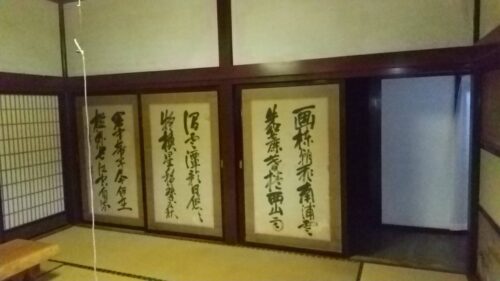 画棟朝飛南浦雲
朱簾暮捲西山雨
閑雲潭影日悠々
物換星移幾度秋
閣中帝子今何在
檻外長江空自流